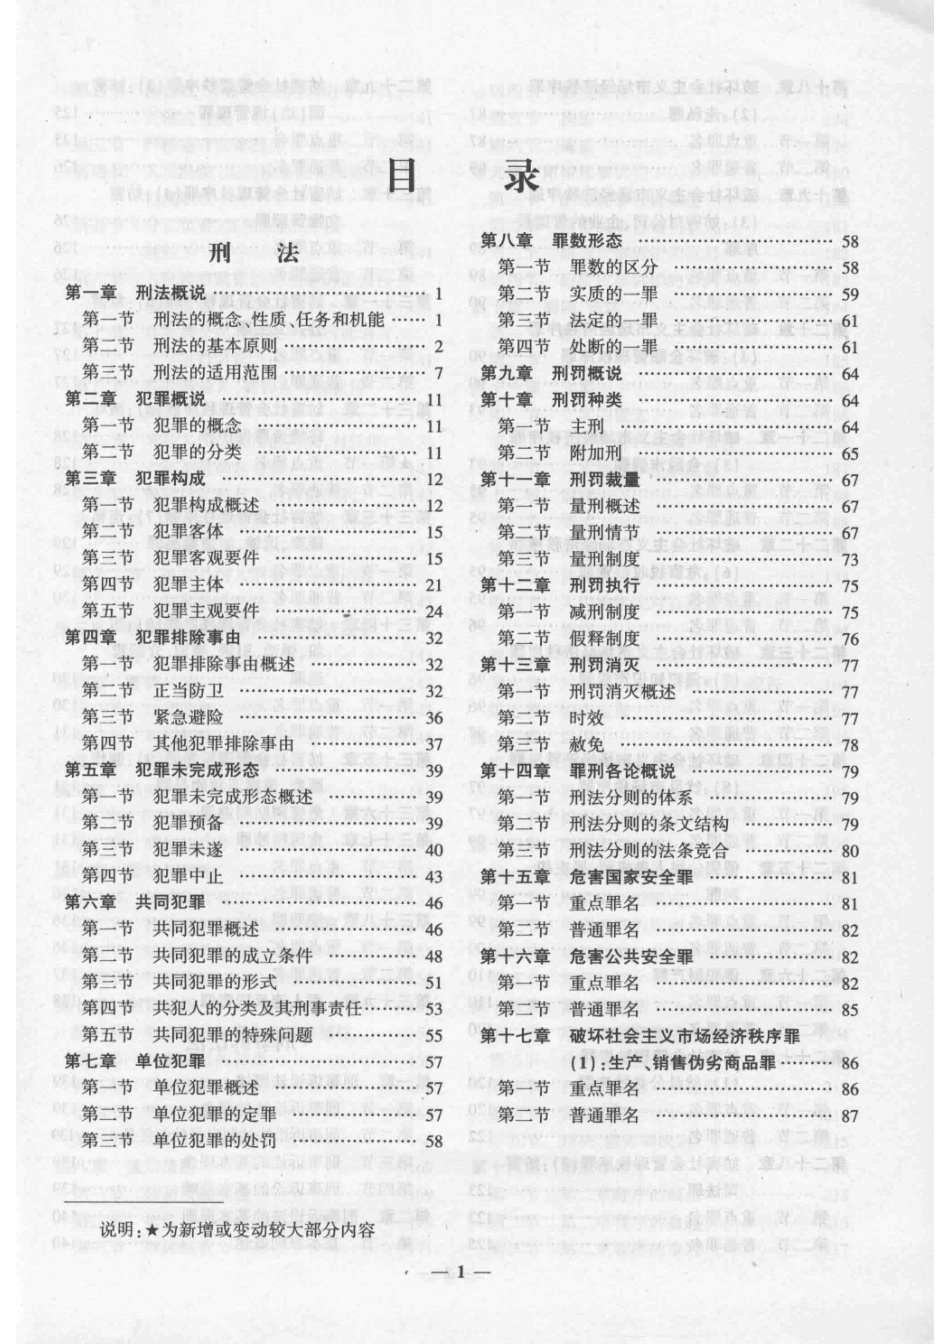 目 录
刑 法
第一章 刑法概说 …… 1
第一节 刑法的概念、性质、任务和机能 …… 1
第二节 刑法的基本原则 …… 2
第三节 刑法的适用范围 …… 7
第二章 犯罪概说 …… 11
第一节 犯罪的概念 …… 11
第二节 犯罪的分类 …… 11
第三章 犯罪构成 …… 12
第一节 犯罪构成概述 …… 12
第二节 犯罪客体 …… 15
第三节 犯罪客观要件 …… 15
第四节 犯罪主体 …… 21
第五节 犯罪主观要件 …… 24
第四章 犯罪排除事由 …… 32
第一节 犯罪排除事由概述 …… 32
第二节 正当防卫 …… 32
第三节 紧急避险 …… 36
第四节 其他犯罪排除事由 …… 37
第五章 犯罪未完成形态 …… 39
第一节 犯罪未完成形态概述 …… 39
第二节 犯罪预备 …… 39
第三节 犯罪未遂 …… 40
第四节 犯罪中止 …… 43
第六章 共同犯罪 …… 46
第一节 共同犯罪概述 …… 46
第二节 共同犯罪的成立条件 …… 48
第三节 共同犯罪的形式 …… 51
第四节 共犯人的分类及其刑事责任 …… 53
第五节 共同犯罪的特殊问题 …… 55
第七章 单位犯罪 …… 57
第一节 单位犯罪概述 …… 57
第二节 单位犯罪的定罪 …… 57
第三节 单位犯罪的处罚 …… 58
第八章 罪数形态 …… 58
第一节 罪数的区分 …… 58
第二节 实质的一罪 …… 59
第三节 法定的一罪 …… 61
第四节 处断的一罪 …… 61
第九章 刑罚概说 …… 64
第十章 刑罚种类 …… 64
第一节 主刑 …… 64
第二节 附加刑 …… 65
第十一章 刑罚裁量 …… 67
第一节 量刑概述 …… 67
第二节 量刑情节 …… 67
第三节 量刑制度 …… 73
第十二章 刑罚执行 …… 75
第一节 减刑制度 …… 75
第二节 假释制度 …… 76
第十三章 刑罚消灭 …… 77
第一节 刑罚消灭概述 …… 77
第二节 时效 …… 77
第三节 赦免 …… 78
第十四章 罪刑各论概说 …… 79
第一节 刑法分则的体系 …… 79
第二节 刑法分则的条文结构 …… 79
第三节 刑法分则的法条竞合 …… 80
第十五章 危害国家安全罪 …… 81
第一节 重点罪名 …… 81
第二节 普通罪名 …… 82
第十六章 危害公共安全罪 …… 82
第一节 重点罪名 …… 82
第二节 普通罪名 …… 85
第十七章 破坏社会主义市场经济秩序罪
(1):生产、销售伪劣商品罪 …… 86
第一节 重点罪名 …… 86
第二节 普通罪名 …… 87
说明:★为新增或变动较大部分内容
— 1 —